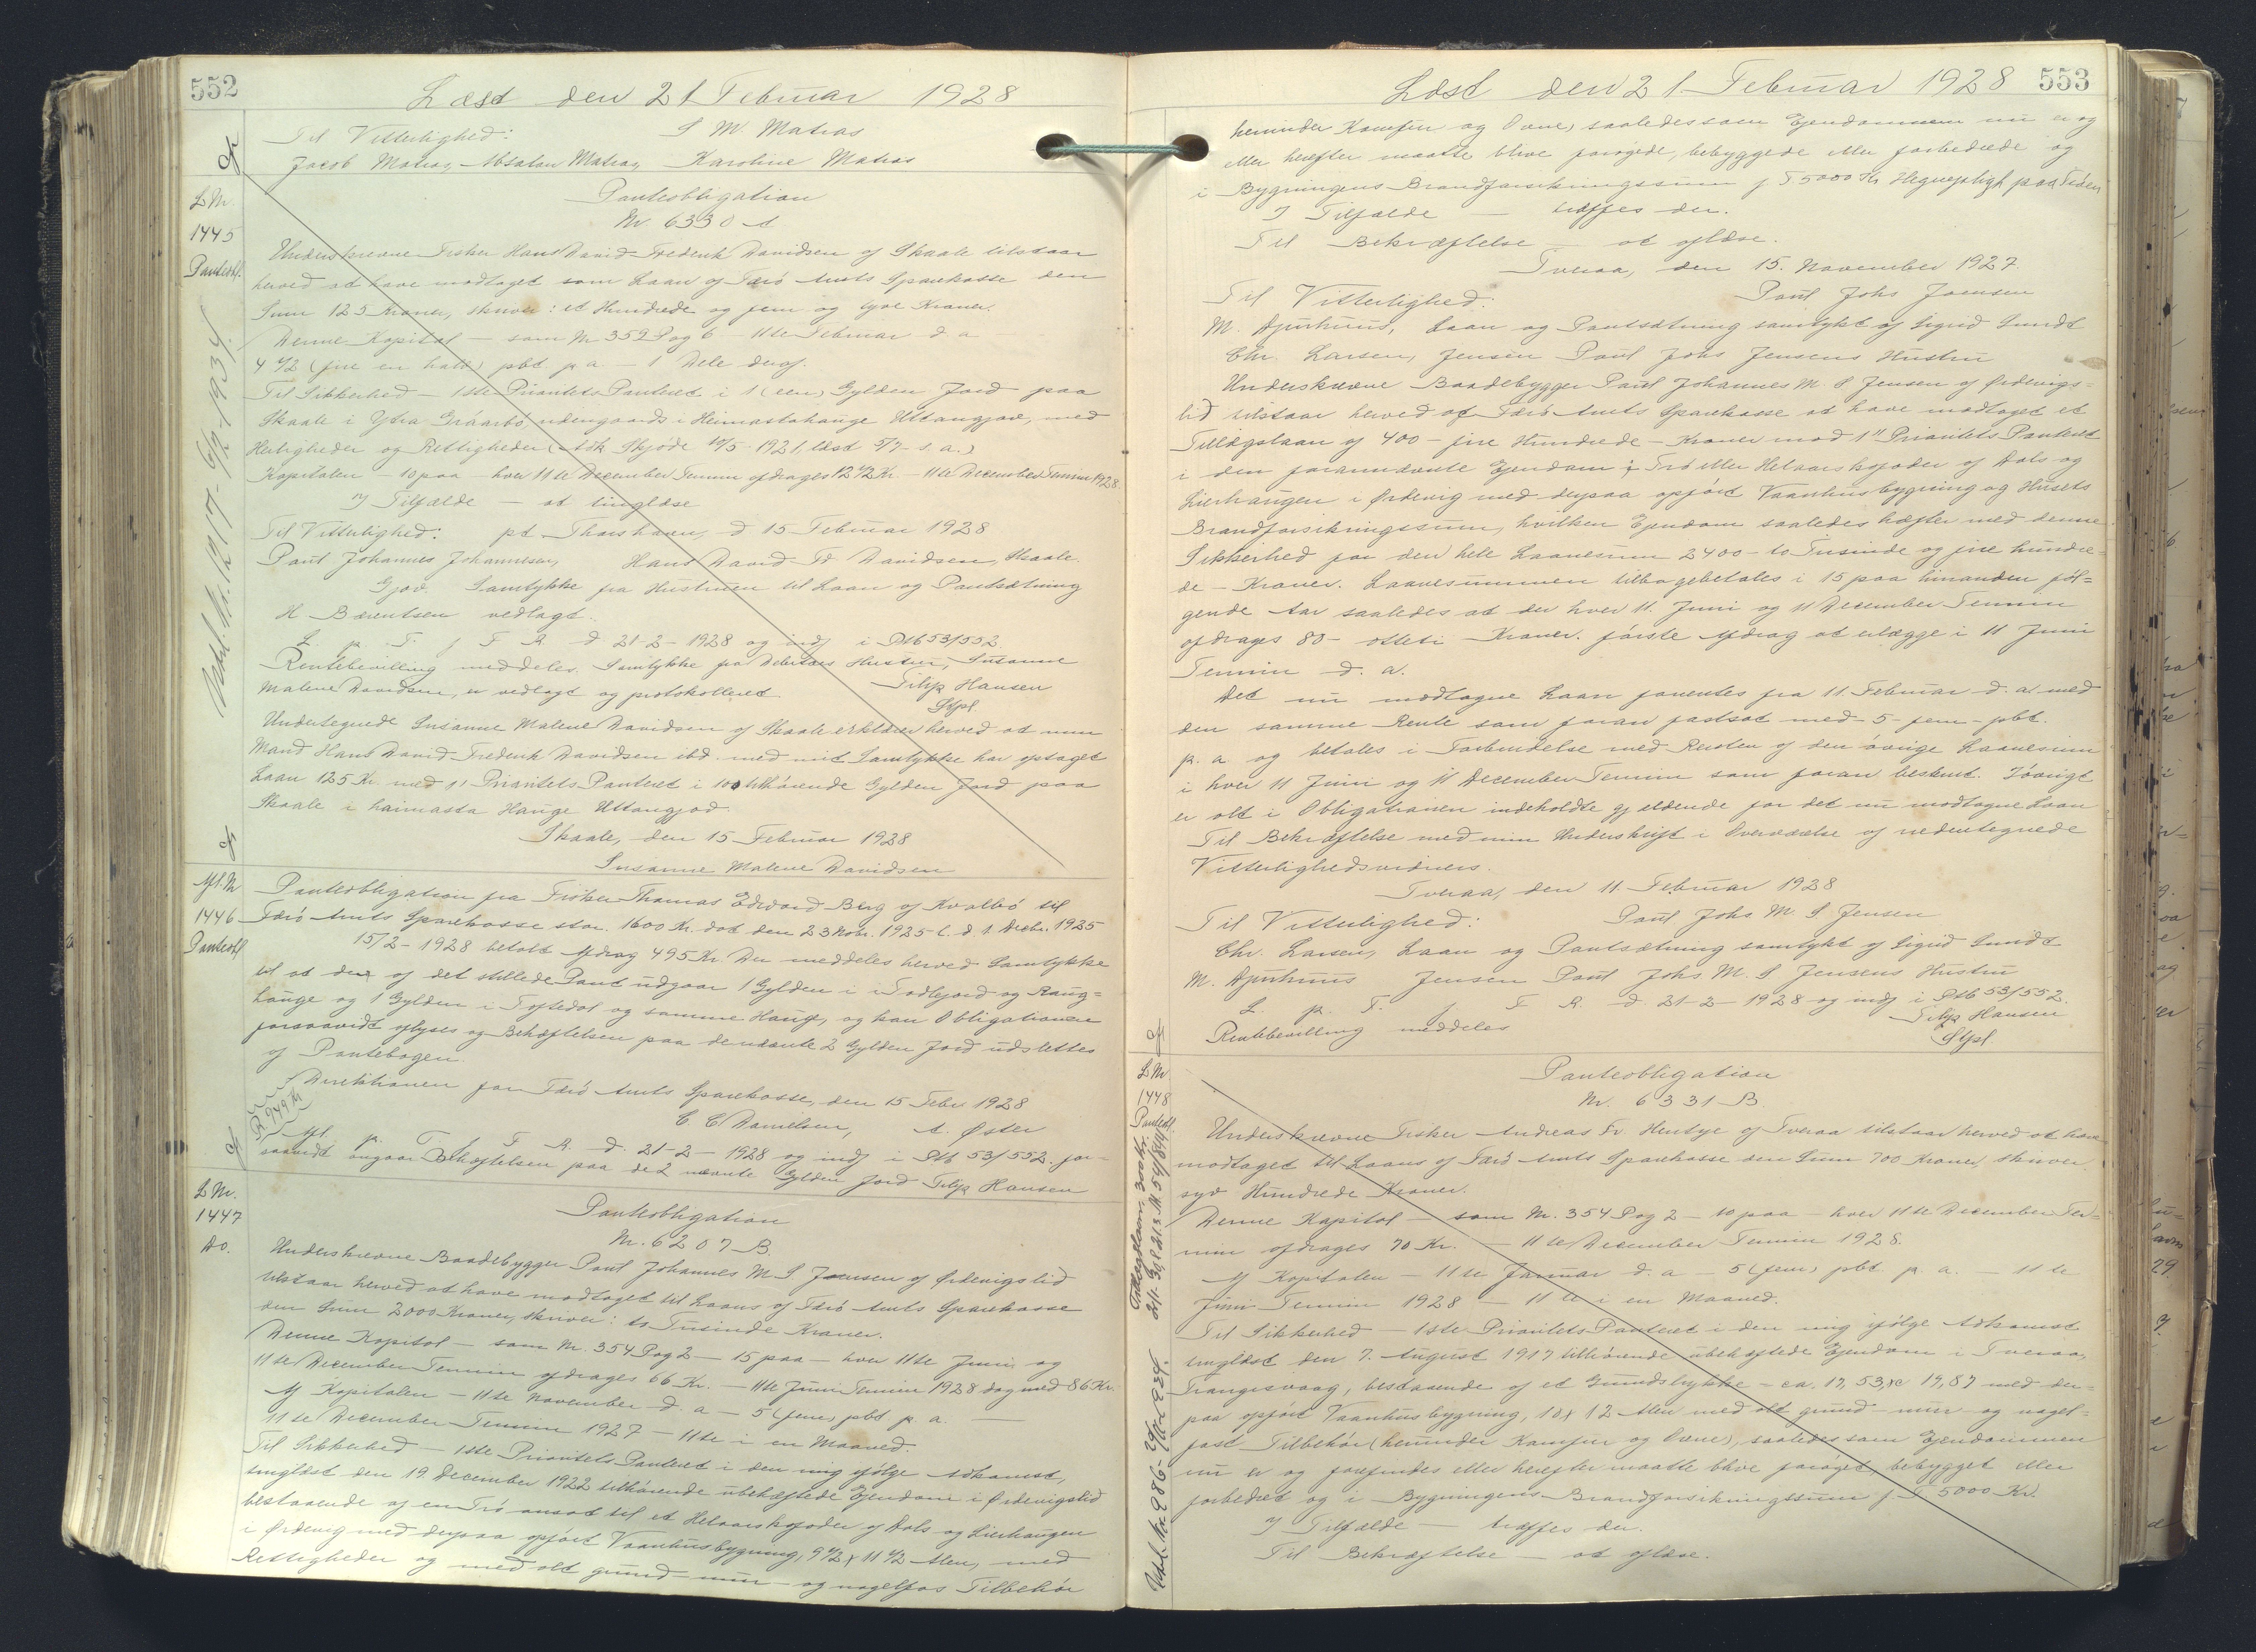 552
Læst den 21 Februar 1928
Til Vitterlighed: S M. Matras
Jacob Matras, Absalon Matras, Karoline Matras
L Nr. 1445 Panteobl.
Udsl. Nr. 1217 - 5/2-1934.
Panteobligation
Nr 6330 A
Underskrevne Fisker Hans David Frederik Davidsen af Skaale tilstaar
herved at have modtaget som Laan af Færø Amts Sparekasse den
Sum 125 Kroner, skriver: et Hundrede og fem og tyve Kroner.
Denne Kapital — som Nr 352 Pag 6 — 11te Februar d. a
4 1/2 (fire en halv) pCt. p. a. — 1 Dele deraf.
Til Sikkerhed — 1ste Prioritets Panteret i 1 (een) Gylden Jord paa
Skaale i Ytra Gráarbó, udengaards i Heimastahauge Uttangjov, med
Herligheder og Rettigheder (Adk Skjøde 10/5 1921, læst 5/7 s. a.)
Kapitalen — 10 paa — hver 11te December Termin afdrages 12 1/2 Kr. — 11te December Termin 1928.
I Tilfælde — at tinglæse
Til Vitterlighed: pt. Thorshavn, d 15 Februar 1928
Paul Johannes Johannesen, Hans David Fr Davidsen, Skaale.
Gjov. Samtykke fra Hustruen til Laan og Pantsætning
H Bærentsen vedlagt.
L. p. T. f F R. d 21-2-1928 og indf i Ptb 53/552.
Rentebevilling meddeles. Samtykke fra Debitors Hustru, Susanne
Malene Davidsen, er vedlagt og protokolleret. Filip Hansen
Stpl.
Undertegnede Susanne Malene Davidsen af Skaale erklærer herved at min
Mand Hans David Frederik Davidsen ibd. med mit Samtykke har optaget
Laan 125 Kr. med 1' Prioritets Panteret i tilhørende Gylden Jord paa
Skaale i haimasta Hauge Uttangjod.
Skaale, den 15 Februar 1928
Susanne Malene Davidsen
Afl. Nr 1446 Panteobl
Panteobligation fra Fisker Thomas Edvard Berg af Kvalbø til
Færø Amts Sparekasse stor 1600 Kr. dat den 23 Nobr. 1925 l. d 1. Decbr. 1925
15/2-1928 betalt Afdrag 495 Kr. Der meddeles herved Samtykke
til at der af det stillede Pant udgaar 1 Gylden i og
Hauge og 1 Gylden i Toftedal og samme Hauge, og kan Obligationen
forsaavidt aflyses og Behæftelsen paa de nævnte 2 Gylden Jord udslettes
af Pantebogen.
Direktionen for Færø Amts Sparekasse, den 15 Febr 1928
C C Danielsen, A. Øster
Afl. p. T f F R. d. 21-2-1928 og indf i Ptb 53/552. for-
saavidt angaar Behæftelsen paa de 2 nævnte Gylden Jord Filip Hansen
L Nr. 1447 Do.
Panteobligation
Nr. 6207 B.
Underskrevne Baadebygger Paul Johannes M S Joensen af Ørdevigslid
tilstaar herved at have modtaget til Laans af Færø Amts Sparekasse
den Sum 2000 Kroner, skriver: to Tusinde Kroner.
Denne Kapital — som Nr. 354 Pag 2 — 15 paa — hver 11te Juni og
11te December Termin afdrages 66 Kr. — 11te Juni Termin 1928 dog med 86 Kr.
Af Kapitalen — 11te November d. a — 5 (fem) pCt p a. —
11te December Termin 1927 — 11te i en Maaned.
Til Sikkerhed — 1ste Prioritets Panteret i den mig ifølge Adkomst,
tinglæst den 19 December 1922 tilhørende ubehæftede Ejendom i Ørdevigslid
bestaaende af en Trø ansat til et Helaarskofoder af Dals og Lierhaugen
i Ørdevig med derpaa opført Vaanhusbygning, 9 1/2 x 11 1/2 Alen, med
Rettigheder og med alt grund- mur- og nagelfas Tilbehør
553
Læst den 21 Februar 1928
herunder Komfur og Ovne, saaledes som Ejendommen nu er og
eller herefter maatte blive forøgede, bebyggede eller forbedrede og
i Bygningens Brandforsikringssum f T 5000 Kr Hegnepligt paa Siden
I Tilfælde — træffes der.
Til Bekræftelse — at aflæse.
Tveraa, den 15. November 1927.
Til Vitterlighed: Paul Johs Joensen
M. Djurhuus, Laan og Pantsætning samtykt af Sigrid Sundt
Chr. Larsen, Jensen Paul Johs Jensens Hustru
Underskrevne Baadebygger Paul Johannes M. S Jensen af Ørdevigs-
lid tilstaar herved af Færø Amts Sparekasse at have modtaget et
Tillægslaan af 400 - fire Hundrede - Kroner mod 1" Prioritets Panteret
i den forannævnte Ejendom Trø eller Helaarskofoder af Dals og
Lierhaugen i Ørdevig med derpaa opført Vaanhusbygning og Husets
Brandforsikringssum, hvilken Ejendom saaledes hæfter med denne
Sikkerhed for den hele Laanesum 2400 - to Tusinde og fire hundre-
de - Kroner. Laanesummen tilbagebetales i 15 paa hinanden føl-
gende Aar saaledes at der hver 11. Juni og 11 December Termin
afdrages 80 - otteti - Kroner. første Afdrag at erlægge i 11 Juni
Termin d. a.
Det nu modtagne Laan forrentes fra 11. Februar d. a med
den samme Rente som foran fastsat med 5 - fem - pCt.
p. a og betales i Forbindelse med Renten af den øvrige Laanesum
i hver 11 Juni og 11 December Termin som foran bestemt. Iøvrigt
er alt i Obligationen indeholdte gjældende for det nu modtagne Laan
Til Bekræftelse med min Underskrift i Overværelse af nedentegnede
Vitterlighedsvidner.
Tveraa, den 11. Februar 1928
Til Vitterlighed: Paul Johs M. S Jensen
Chr. Larsen, Laan og Pantsætning samtykt af Sigrid Sundt
M. Djurhuus Jensen Paul Johs M. S Jensens Hustru
L. p. T. f. F R. d 21-2-1928 og indf i Ptb 53/552.
Rentebevilling meddeles Filip Hansen
Stpl
L Nr 1448 Panteobl.
Tillægslaan 300 Kr. 54/844
Udsl. No. 986 1934.
Panteobligation
Nr. 6331 B
Underskrevne Fisker Andreas Fr. Hentze af Tveraa tilstaar herved at have
modtaget til Laans af Færø Amts Sparekasse den Sum 700 Kroner, skriver
syv Hundrede Kroner.
Denne Kapital — som Nr. 354 Pag 2 — 10 paa — hver 11te December Ter-
min afdrages 70 Kr. — 11te December Termin 1928.
Af Kapitalen — 11te Januar d. a — 5 (fem) pCt. p. a. — 11te
Juni Termin 1928 — 11te i en Maaned.
Til Sikkerhed — 1ste Prioritets Panteret i den mig ifølge Adkomst
tinglæst den 7. August 1917 tilhørende ubehæftede Ejendom i Tveraa,
Trangisvaag, bestaaende af et Grundstykke - ca. 17,53 x 19,87 med der-
paa opført Vaanhusbygning, 10 x 12 Alen med alt grund- mur- og nagel-
fast Tilbehør (herunder Komfur og Ovne), saaledes som Ejendommen
nu er og forefindes eller herefter maatte blive forøget, bebygget eller
forbedret og i Bygningens Brandforsikringssum f T 5000 Kr.
I Tilfælde — træffes der.
Til Bekræftelse — at aflæse.